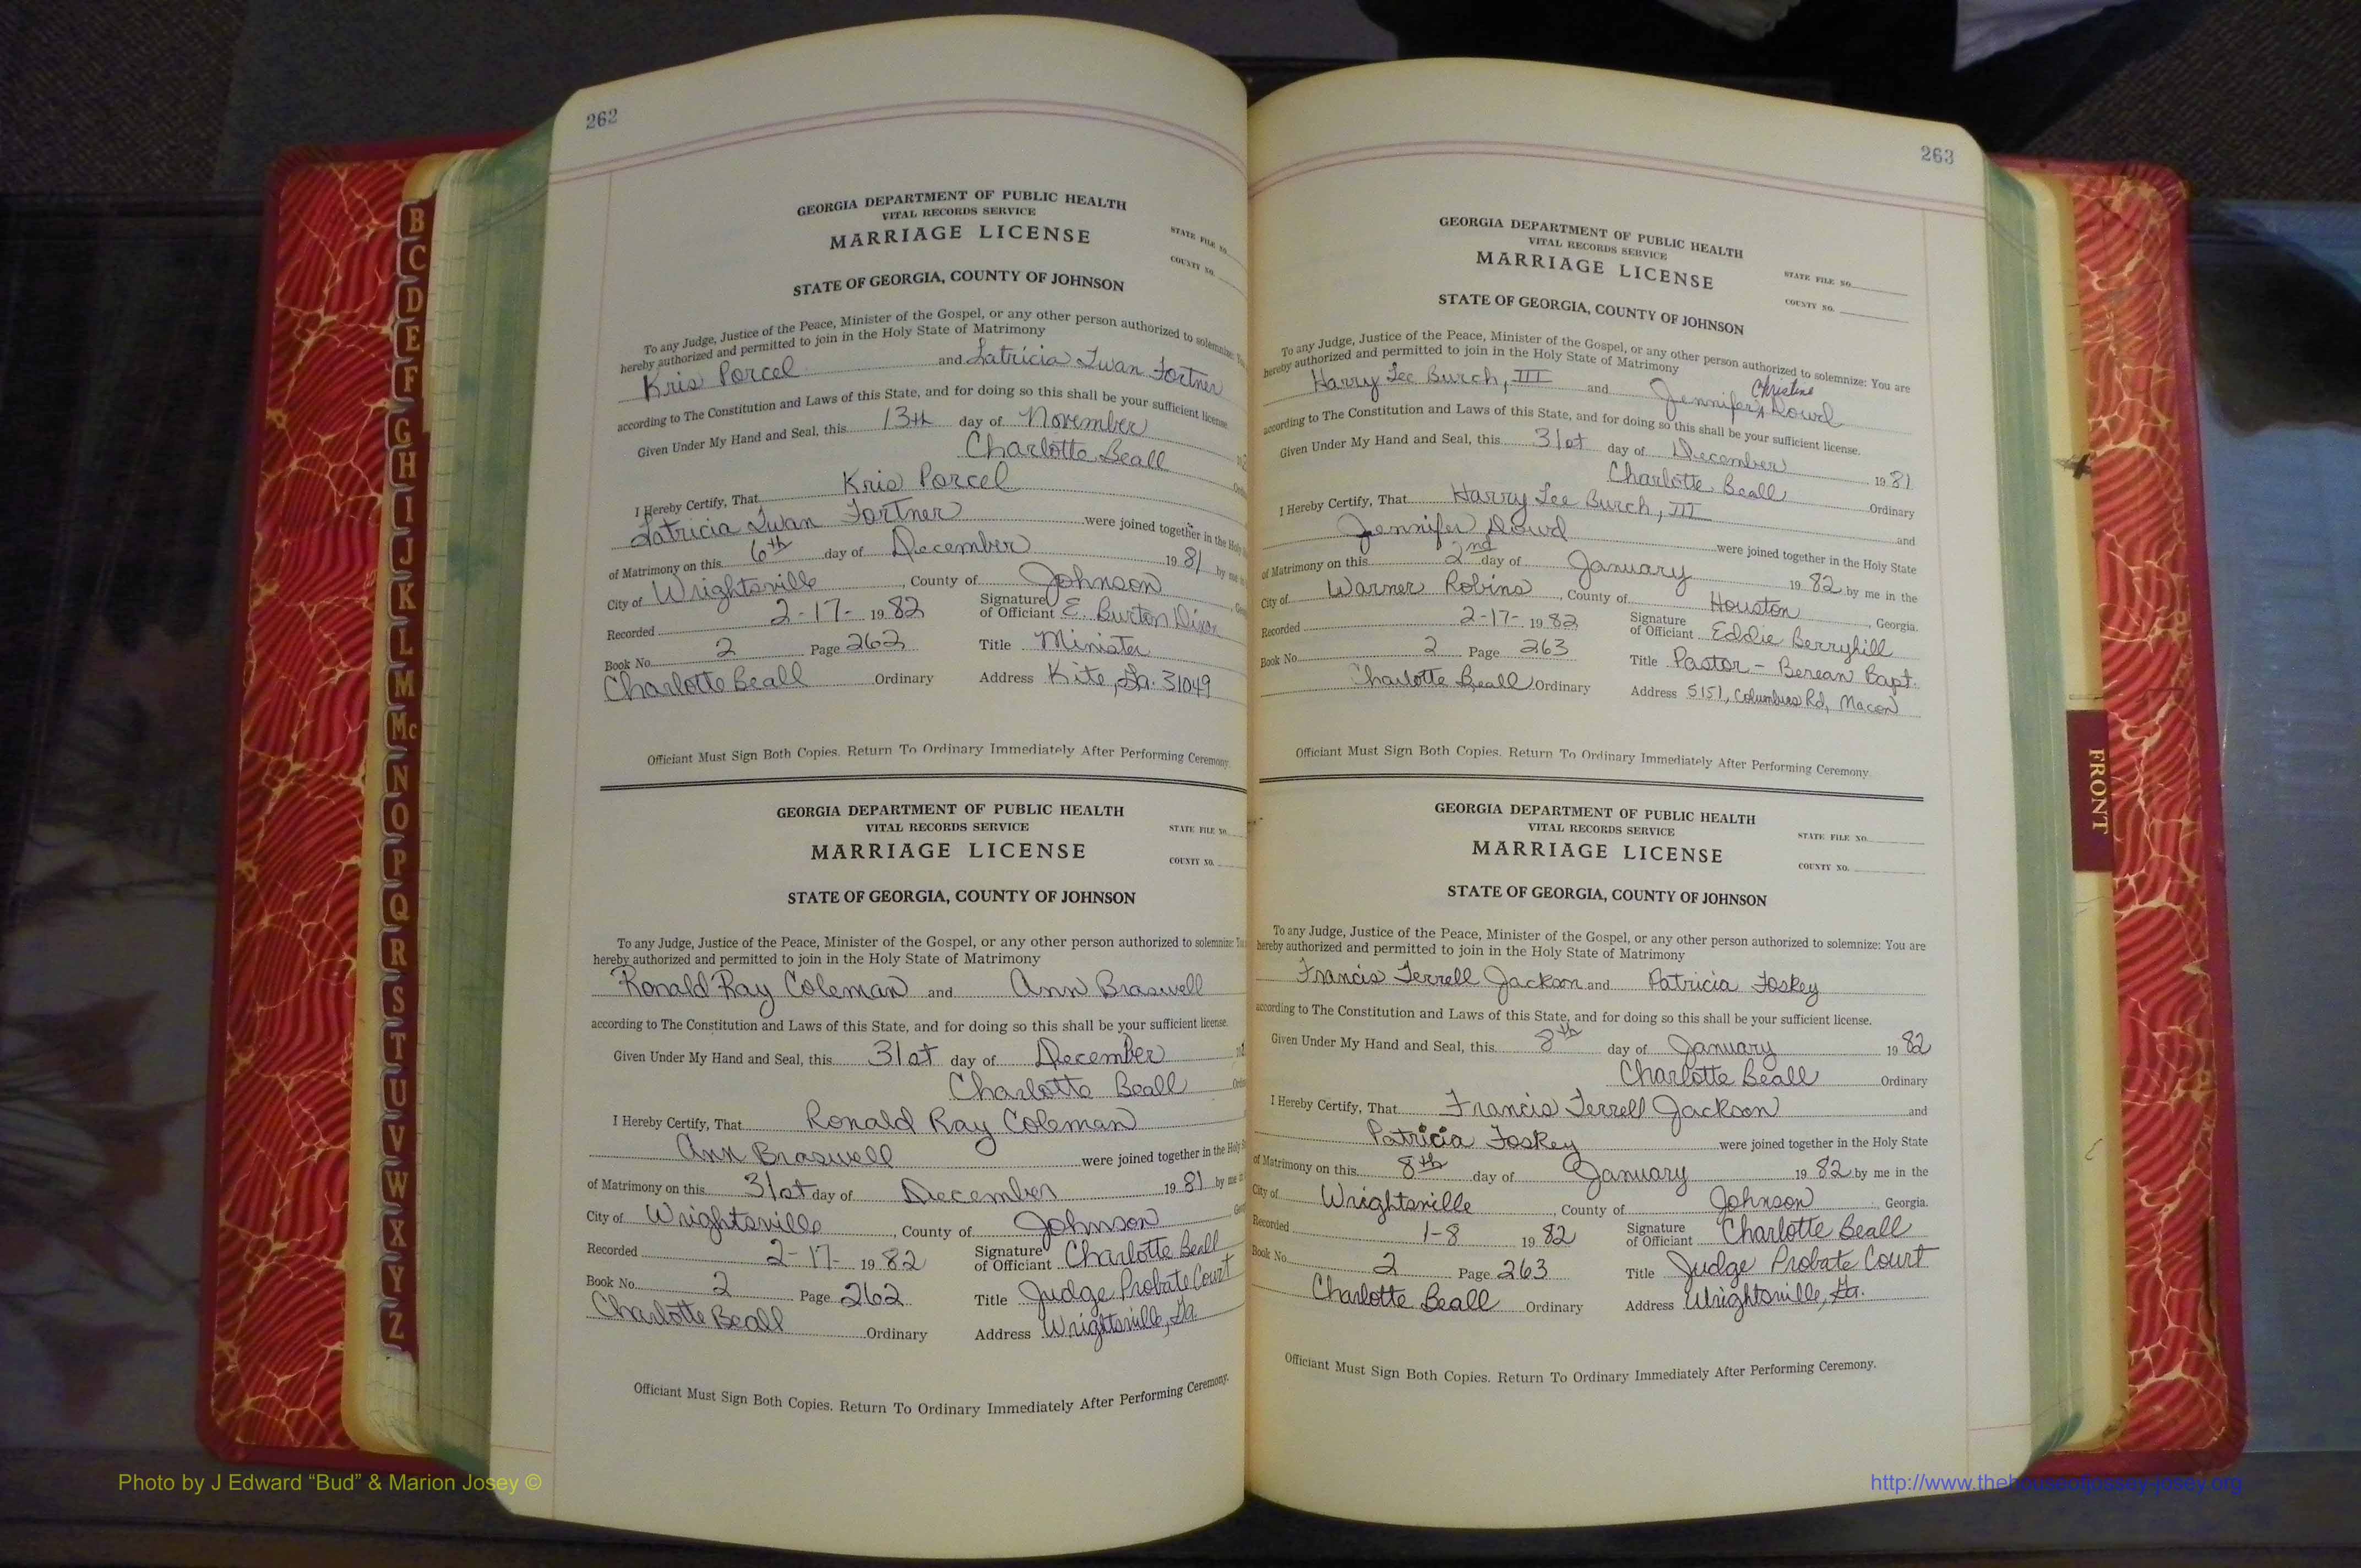 262
GEORGIA DEPARTMENT OF PUBLIC HEALTH
VITAL RECORDS SERVICE
MARRIAGE LICENSE
STATE FILE NO.
COUNTY NO.
STATE OF GEORGIA, COUNTY OF JOHNSON
To any Judge, Justice of the Peace, Minister of the Gospel, or any other person authorized to solemnize:
hereby authorized and permitted to join in the Holy State of Matrimony
Kris Porcel and Latricia Twan Fortner
according to The Constitution and Laws of this State, and for doing so this shall be your sufficient license.
Given Under My Hand and Seal, this 13th day of November
Charlotte Beall
I Hereby Certify, That Kris Porcel
Latricia Twan Fortner were joined together in the Holy
of Matrimony on this 6th day of December 1981 by me
City of Wrightsville, County of Johnson
Recorded 2-17- 1982 Signature of Officiant E. Burton Dixon
Book No. 2 Page 262 Title Minister
Charlotte Beall Ordinary Address Kite, Ga. 31049
Officiant Must Sign Both Copies. Return To Ordinary Immediately After Performing Ceremony.
GEORGIA DEPARTMENT OF PUBLIC HEALTH
VITAL RECORDS SERVICE
MARRIAGE LICENSE
STATE FILE NO.
COUNTY NO.
STATE OF GEORGIA, COUNTY OF JOHNSON
To any Judge, Justice of the Peace, Minister of the Gospel, or any other person authorized to solemnize:
hereby authorized and permitted to join in the Holy State of Matrimony
Ronald Ray Coleman and Ann Braswell
according to The Constitution and Laws of this State, and for doing so this shall be your sufficient license.
Given Under My Hand and Seal, this 31st day of December
Charlotte Beall
I Hereby Certify, That Ronald Ray Coleman
Ann Braswell were joined together in the Holy
of Matrimony on this 31st day of December 1981 by me
City of Wrightsville, County of Johnson
Recorded 2-17- 1982 Signature of Officiant Charlotte Beall
Book No. 2 Page 262 Title Judge Probate Court
Charlotte Beall Ordinary Address Wrightsville, Ga
Officiant Must Sign Both Copies. Return To Ordinary Immediately After Performing Ceremony.
263
GEORGIA DEPARTMENT OF PUBLIC HEALTH
VITAL RECORDS SERVICE
MARRIAGE LICENSE
STATE FILE NO.
COUNTY NO.
STATE OF GEORGIA, COUNTY OF JOHNSON
To any Judge, Justice of the Peace, Minister of the Gospel, or any other person authorized to solemnize: You are
hereby authorized and permitted to join in the Holy State of Matrimony
Harry Lee Burch, III and Jennifer Christine Dowd
according to The Constitution and Laws of this State, and for doing so this shall be your sufficient license.
Given Under My Hand and Seal, this 31st day of December 1981
Charlotte Beall Ordinary
I Hereby Certify, That Harry Lee Burch, III and
Jennifer Dowd were joined together in the Holy State
of Matrimony on this 2nd day of January 1982 by me in the
City of Warner Robins, County of Houston, Georgia.
Recorded 2-17- 1982 Signature of Officiant Eddie Berryhill
Book No. 2 Page 263 Title Pastor - Berean Bapt.
Charlotte Beall Ordinary Address 5151, Columbus Rd, Macon
Officiant Must Sign Both Copies. Return To Ordinary Immediately After Performing Ceremony.
GEORGIA DEPARTMENT OF PUBLIC HEALTH
VITAL RECORDS SERVICE
MARRIAGE LICENSE
STATE FILE NO.
COUNTY NO.
STATE OF GEORGIA, COUNTY OF JOHNSON
To any Judge, Justice of the Peace, Minister of the Gospel, or any other person authorized to solemnize: You are
hereby authorized and permitted to join in the Holy State of Matrimony
Francis Terrell Jackson and Patricia Foskey
according to The Constitution and Laws of this State, and for doing so this shall be your sufficient license.
Given Under My Hand and Seal, this 8th day of January 1982
Charlotte Beall Ordinary
I Hereby Certify, That Francis Terrell Jackson and
Patricia Foskey were joined together in the Holy State
of Matrimony on this 8th day of January 1982 by me in the
City of Wrightsville, County of Johnson, Georgia.
Recorded 1-8 1982 Signature of Officiant Charlotte Beall
Book No. 2 Page 263 Title Judge Probate Court
Charlotte Beall Ordinary Address Wrightsville, Ga.
Officiant Must Sign Both Copies. Return To Ordinary Immediately After Performing Ceremony.
B
C
D
E
F
G
H
I
J
K
L
M
Mc
N
O
P
Q
R
S
T
U
V
W
X
Y
Z
FRONT
Photo by J Edward “Bud” & Marion Josey ©
http://www.thehouseofjossey-josey.org